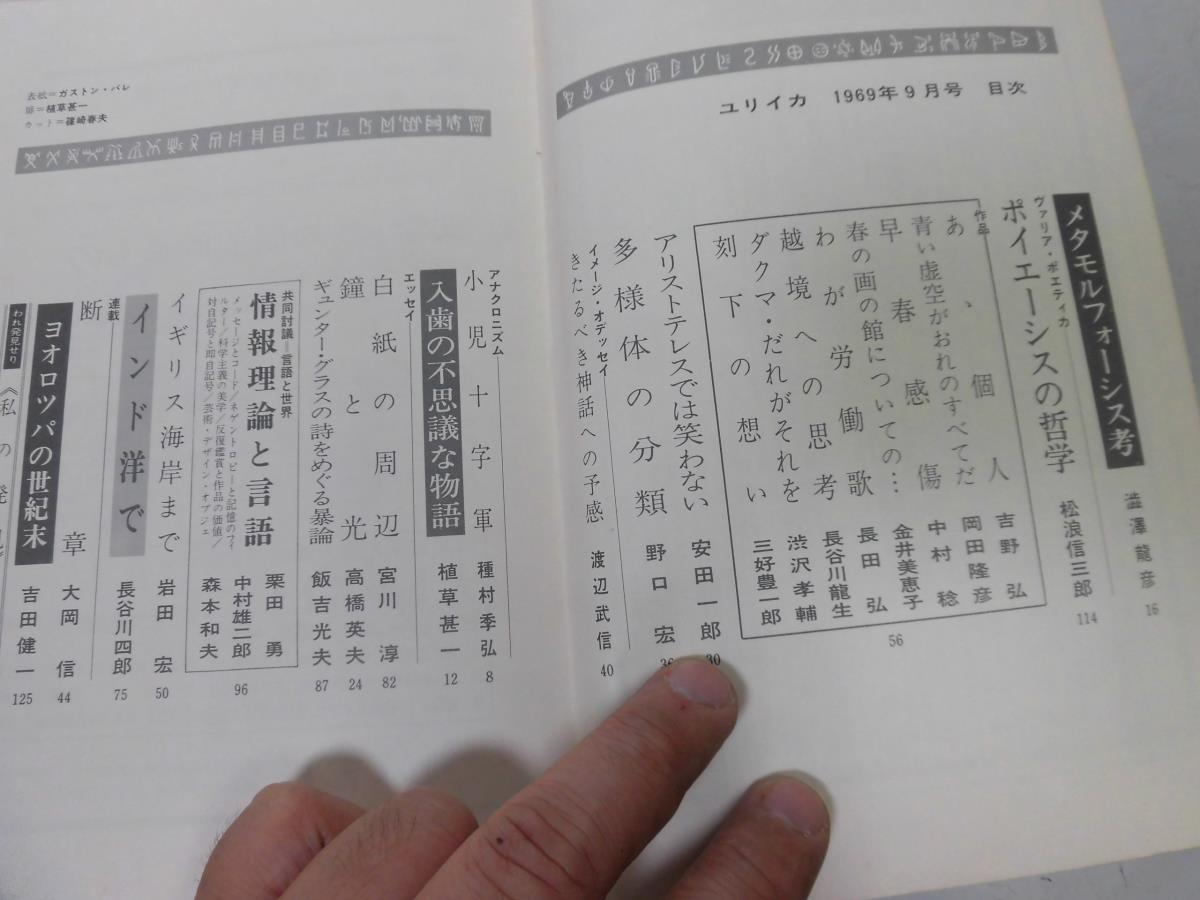 ユリイカ 1969年9月号 目次
メタモルフォーシス考 澁澤龍彦 16
ヴァリア・ポエティカ
ポイエーシスの哲学 松浪信三郎 114
作品
あゝ個人 吉野弘
青い虚空がおれのすべてだ 岡田隆彦
早春感傷 中村稔
春の画の館についての… 金井美恵子
わが労働歌 長田弘
越境への思考 長谷川龍生
ダクマ・だれがそれを 渋沢孝輔
刻下の想い 三好豊一郎
56
アリストテレスでは笑わない 安田一郎 30
多様体の分類 野口宏 36
イメージ・オデッセイ
きたるべき神話への予感 渡辺武信 40
アナクロニズム
小児十字軍 種村季弘 8
入歯の不思議な物語 植草甚一 12
エッセイ
白紙の周辺 宮川淳 82
鐘と光 高橋英夫 24
ギュンター・グラスの詩をめぐる暴論 飯吉光夫 87
共同討議=言語と世界
情報理論と言語
メッセージとコード/ネゲントロピーと記憶のフィ
ルター/科学主義の美学/反復鑑賞と作品の価値/
対自記号と即自記号/芸術・デザイン・オブジェ
栗田勇
中村雄二郎
森本和夫
96
イギリス海岸まで 岩田宏 50
インド洋で 長谷川四郎 75
連載
断章 大岡信 44
ヨオロッパの世紀末 吉田健一 125
われ発見せり
《私の発見
表紙=ガストン・バレ
扉=植草甚一
カット=篠崎春夫